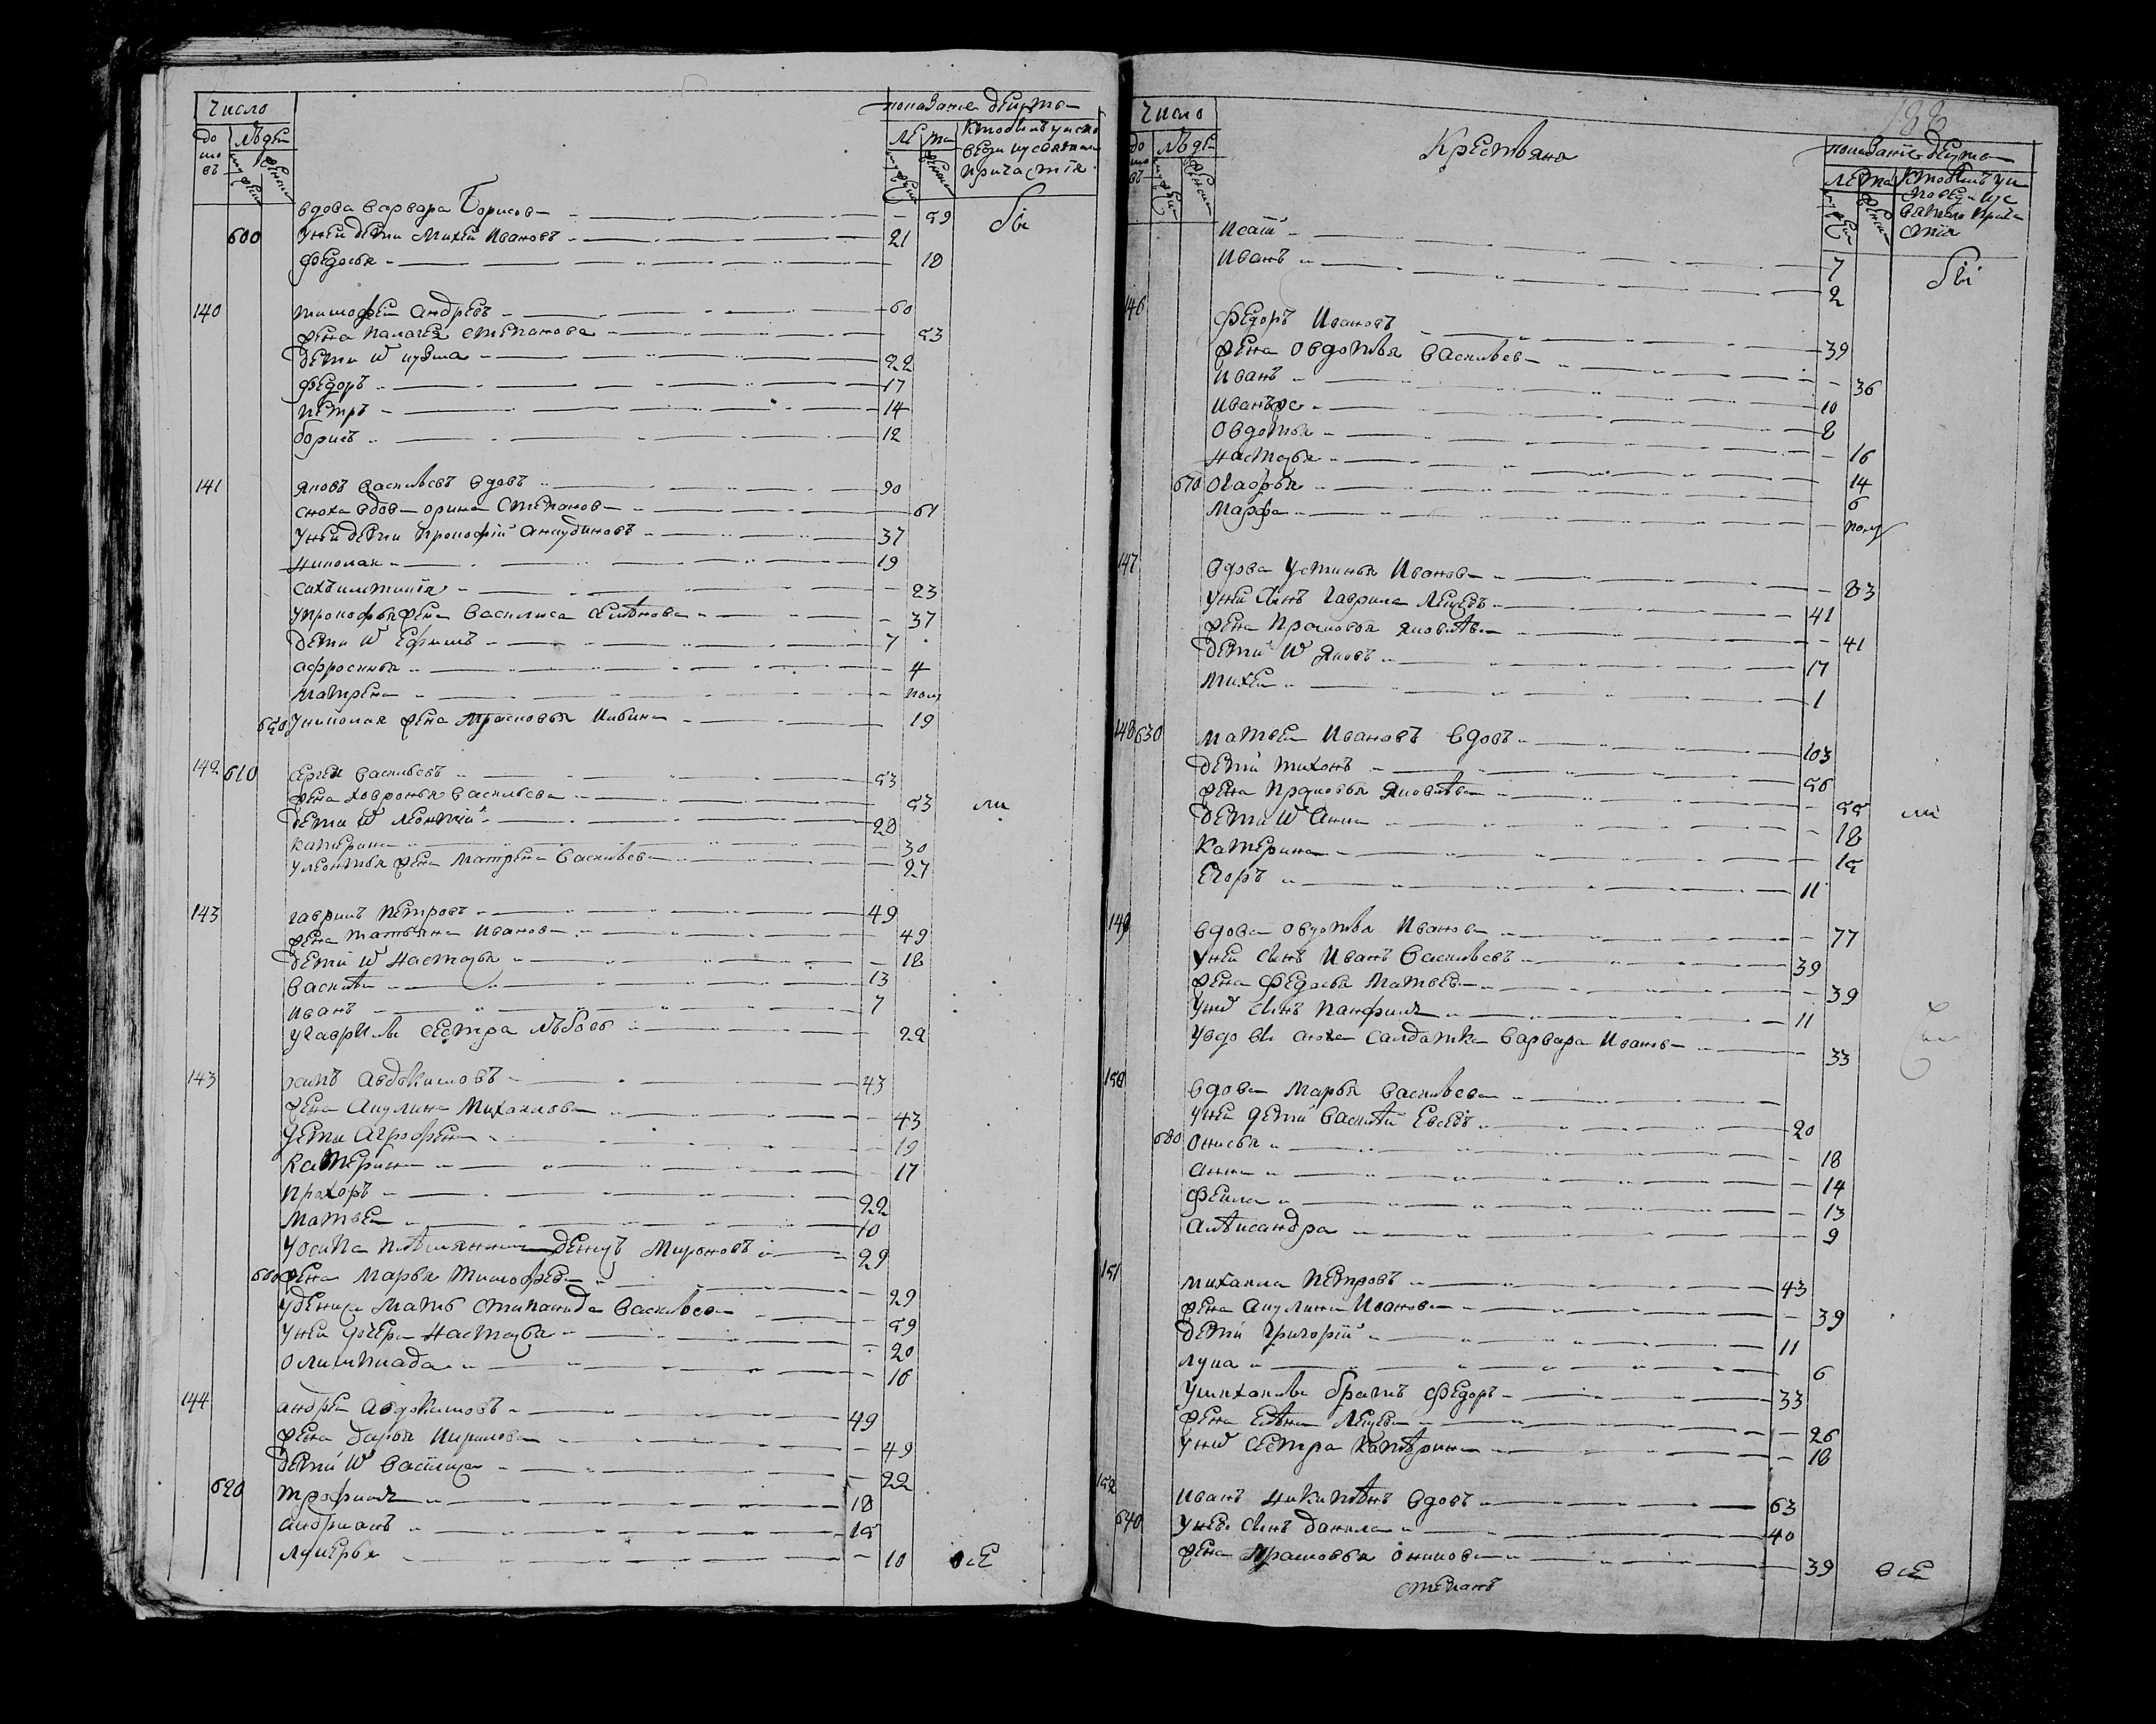 Число
показание действа
домовъ
людей
лета
мужска
женска
кто былъ у испо
веди и у святаго
причастія
вдова варвара Борисова 59
бы
600 у ней дети Михей Ивановъ 21
Федосья 18
140 тимофей андреевъ 60
жена палагея степанова 53
дети Ѡ кузма 22
Федоръ 17
петръ 14
борисъ 12
141 яковъ васильевъ вдовъ 90
сноха вдова орина Степанова 61
у ней дети прокофій анкудиновъ 37
николай 19
23
у прокофья жена василиса семенова 37
дети Ѡ ефимъ 7
афросинья 4
матрена полу
650 у николая жена прасковья 19
142 610 сергей васильевъ 53
жена хавронья васильева 53
ли
дети Ѡ леонтій 28
катерина 30
у леонтья жена матрена васильева 27
143 гаврила петровъ 49
жена татьяна иванова 49
дети Ѡ настасья 18
василей 13
иванъ 7
у гаврилы сестра любовь 22
143 осипъ авдокимовъ 43
жена акулина михаилова 43
дети агрофена 19
катерина 17
прохоръ 22
матвей 10
у осипа племянникъ денисъ мироновъ 29
жена марья тимофеева 29
у дениса мать степанида васильева 59
у ней дочери настасья 20
олимпиада 16
144 андрей авдокимовъ 49
жена дарья кирилова 49
дети Ѡ василиса 22
620 трофимъ 18
андрианъ 15
лукерья 10
все
188
Число
Крестьяня
показание действа
домовъ
людей
лета
мужска
женска
кто былъ у ис
поведи и у с
вятаго прича
стія
исай 7
иванъ 2
бы
146 Федоръ Ивановъ 39
жена овдотья васильева 36
иванъ 10
иванъ же 8
овдотья 16
настасья 14
670 огафья 6
марфа полу
147 вдова устинья иванова 83
у ней сынъ гаврила 41
жена прасковья яковлева 41
дети Ѡ яковъ 17
михей 1
148 630 матвей ивановъ вдовъ 103
дети тихонъ 56
жена прасковья яковлева 55
ли
дети Ѡ анна 18
катерина 15
егоръ 11
149 вдова овдотья иванова 77
у ней сынъ иванъ васильевъ 39
жена федосья матвеева 39
у нихъ сынъ панфилъ 11
у вдовы сноха салдатка варвара иванова 33
150 вдова марья васильева
у ней дети василей 20
680 онисья 18
анна 14
фекла 13
александра 9
151 михаила петровъ 43
жена акулина иванова 39
дети григорій 11
лука 6
у михаилы братъ федоръ 33
жена елена 26
у нихъ сестра катерина 18
152 иванъ никитинъ вдовъ 63
640 у него сынъ данила 40
жена прасковья 39
все
степанъ